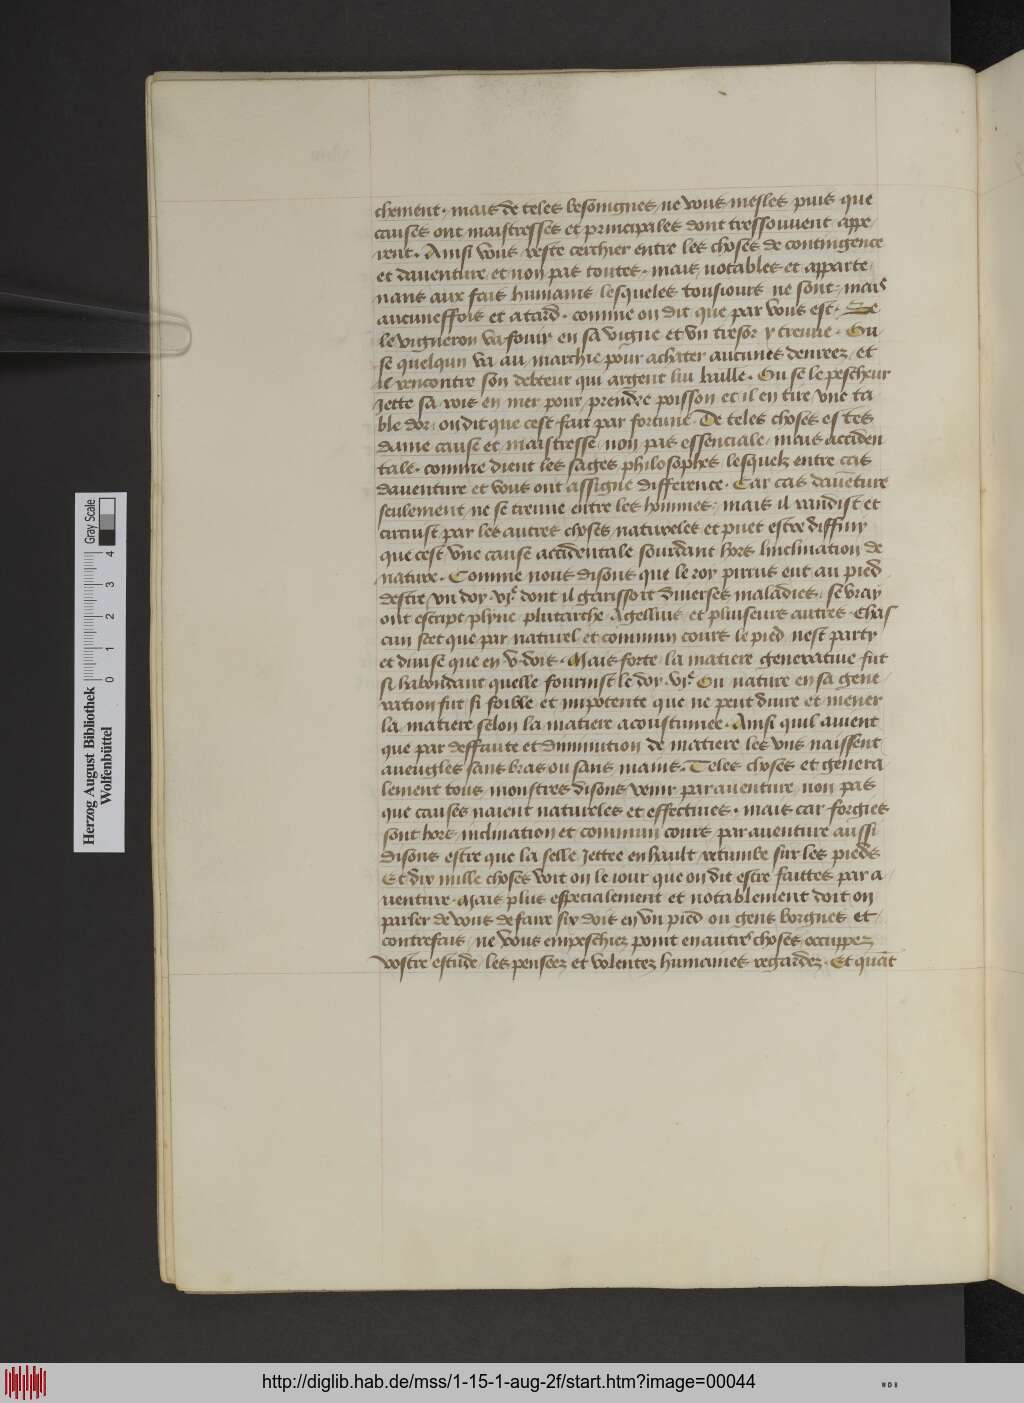 chement · mais de teles besoingnes ne vous mesles puis que
causes ont maistresses et principales dont tressouuent appe
rent · Ainsi vous reste cerchier entre les choses de contingence
et dauenture et non pas toutes · mais notables et apparte
nans aux fais humains lesqueles tousiours ne sont mais
aucuneffois et a tard · comme on dit que par vous est · Se
le vigneron va fouir en sa vigne et vn tresor y treuue · Ou
se quelqun va au marchie pour achater aucunes denrees et
il rencontre son debteur qui argent lui baille · Ou se le pescheur
Jette sa rois en mer pour prendre poisson et il en tire vne ta
ble dor / on dit que cest fait par fortune · De teles choses estes
dame cause et maistresse non pas essenciale mais acciden
tale · comme dient les sages philosophes lesquelz entre cas
dauenture et vous ont assigne difference · Car cas dauēture
seulement ne se treuue entre les hommes mais il randist et
circuist par les autres choses natureles et puet estre diffiny
que cest vne cause accidentale sourdant hors linclination de
nature · Comme nous disons que le roy pirrus eut au pied
destre vn doy vjᵉ dont il garissoit diuerses maladies se vray
ont escript plyne plutarche Agellius et pluiseurs autres Chas
cun scet que par naturel et commun cours le pied nest party
et diuise que en v · dois · Mais forte la matiere generatiue fut
si habondant quelle fournist le doy vjᵉ Ou nature en sa gene
ration fut si foible et impotente que ne peut duire et mener
la matiere selon la matiere acoustumee · Ainsi quil auient
que par deffaute et diminution de matiere les vns naissent
aueugles sans bras ou sans mains · Teles choses et genera
lement tous monstres disons venir par auenture non pas
que causes naient natureles et effectiues · mais car forgies
sont hors inclination et commun cours par auenture aussi
disons estre que la selle Jettee en hault retumbe sur les pieds
Et dix mille choses voit on le iour que on dit estre faittes par a
uenture · Mais plus especialement et notablement doit on
parler de vous de faire six dois en vn pied ou gens borgnes et
contrefais ne vous empeschiez point en autres choses occuppez
vostre estude les pensees et volentez humaines regardez · Et quāt
Herzog August Bibliothek
Wolfenbüttel
0 1 2 3 4
Gray Scale
http://diglib.hab.de/mss/1-15-1-aug-2f/start.htm?image=00044
WDB